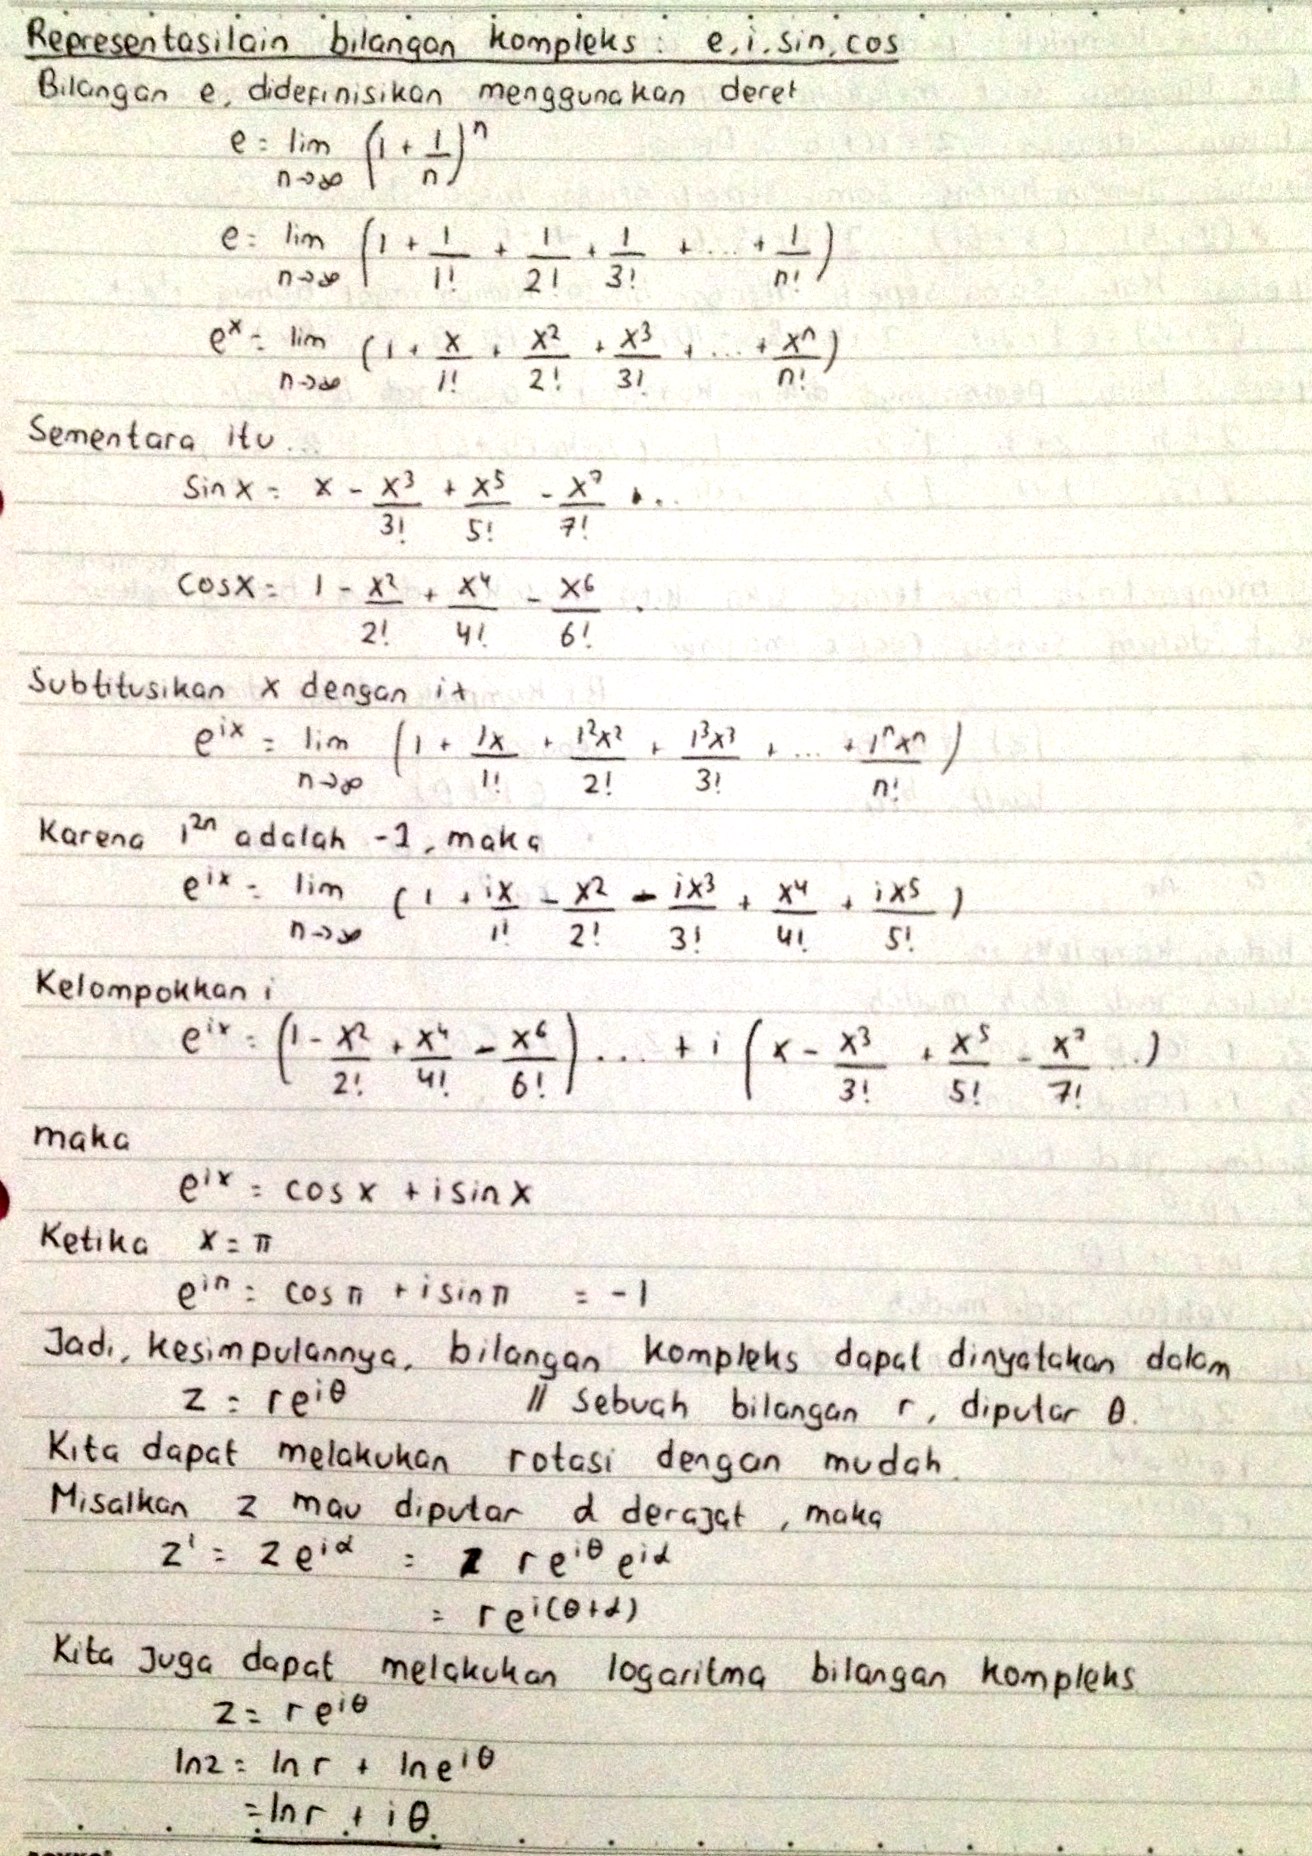 Representasi lain bilangan kompleks : e, i, sin, cos
Bilangan e, didefinisikan menggunakan deret
e = lim n→∞ (1 + 1/n)^n
e = lim n→∞ (1 + 1/1! + 1/2! + 1/3! + ... + 1/n!)
e^x = lim n→∞ (1 + x/1! + x^2/2! + x^3/3! + ... + x^n/n!)
Sementara itu
sin x = x - x^3/3! + x^5/5! - x^7/7! + ..
cos x = 1 - x^2/2! + x^4/4! - x^6/6! .
Subtitusikan x dengan ix
e^ix = lim n→∞ (1 + ix/1! + i^2x^2/2! + i^3x^3/3! + ... + i^nx^n/n!)
Karena i^2n adalah -1, maka
e^ix = lim n→∞ (1 + ix/1! - x^2/2! - ix^3/3! + x^4/4! + ix^5/5!)
Kelompokkan i
e^ix = (1 - x^2/2! + x^4/4! - x^6/6!) ... + i (x - x^3/3! + x^5/5! - x^7/7! ..)
maka
e^ix = cos x + i sin x
Ketika x = π
e^iπ = cos π + i sin π = -1
Jadi, kesimpulannya, bilangan kompleks dapat dinyatakan dalam
z = re^iθ // sebuah bilangan r, diputar θ.
Kita dapat melakukan rotasi dengan mudah.
Misalkan z mau diputar α derajat, maka
z' = z e^iα = r e^iθ e^iα
= r e^i(θ+α)
Kita juga dapat melakukan logaritma bilangan kompleks
z = r e^iθ
ln z = ln r + ln e^iθ
= ln r + iθ